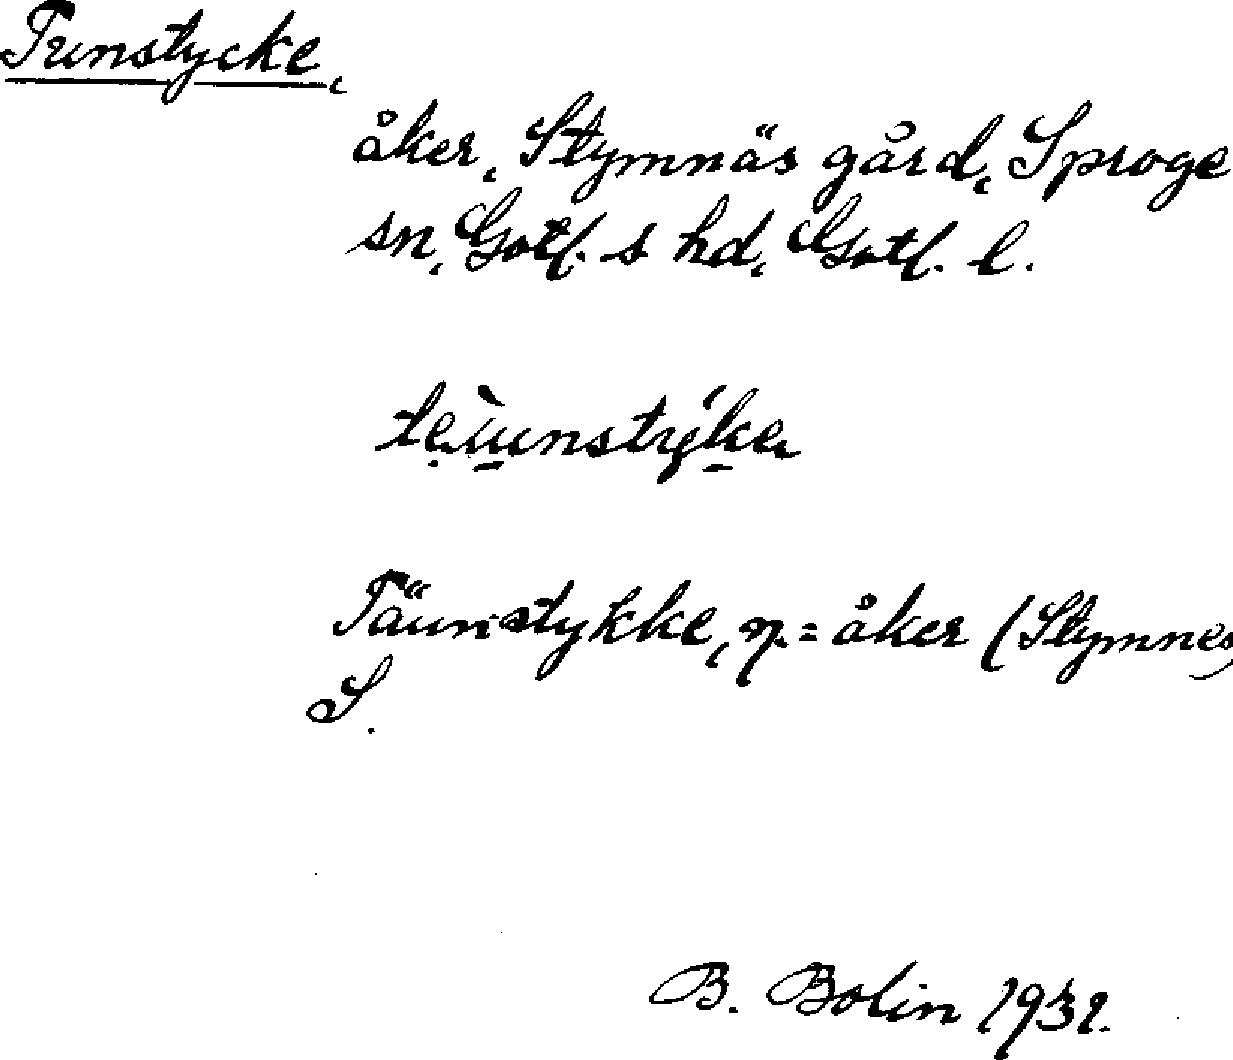 Tunstycke,
åker, Stymnäs gård, Sproge
sn, Gotl. s hd, Gotl. l.
Täunstykke, n. = åker (Stymnes)
S.
B. Bolin 1931.